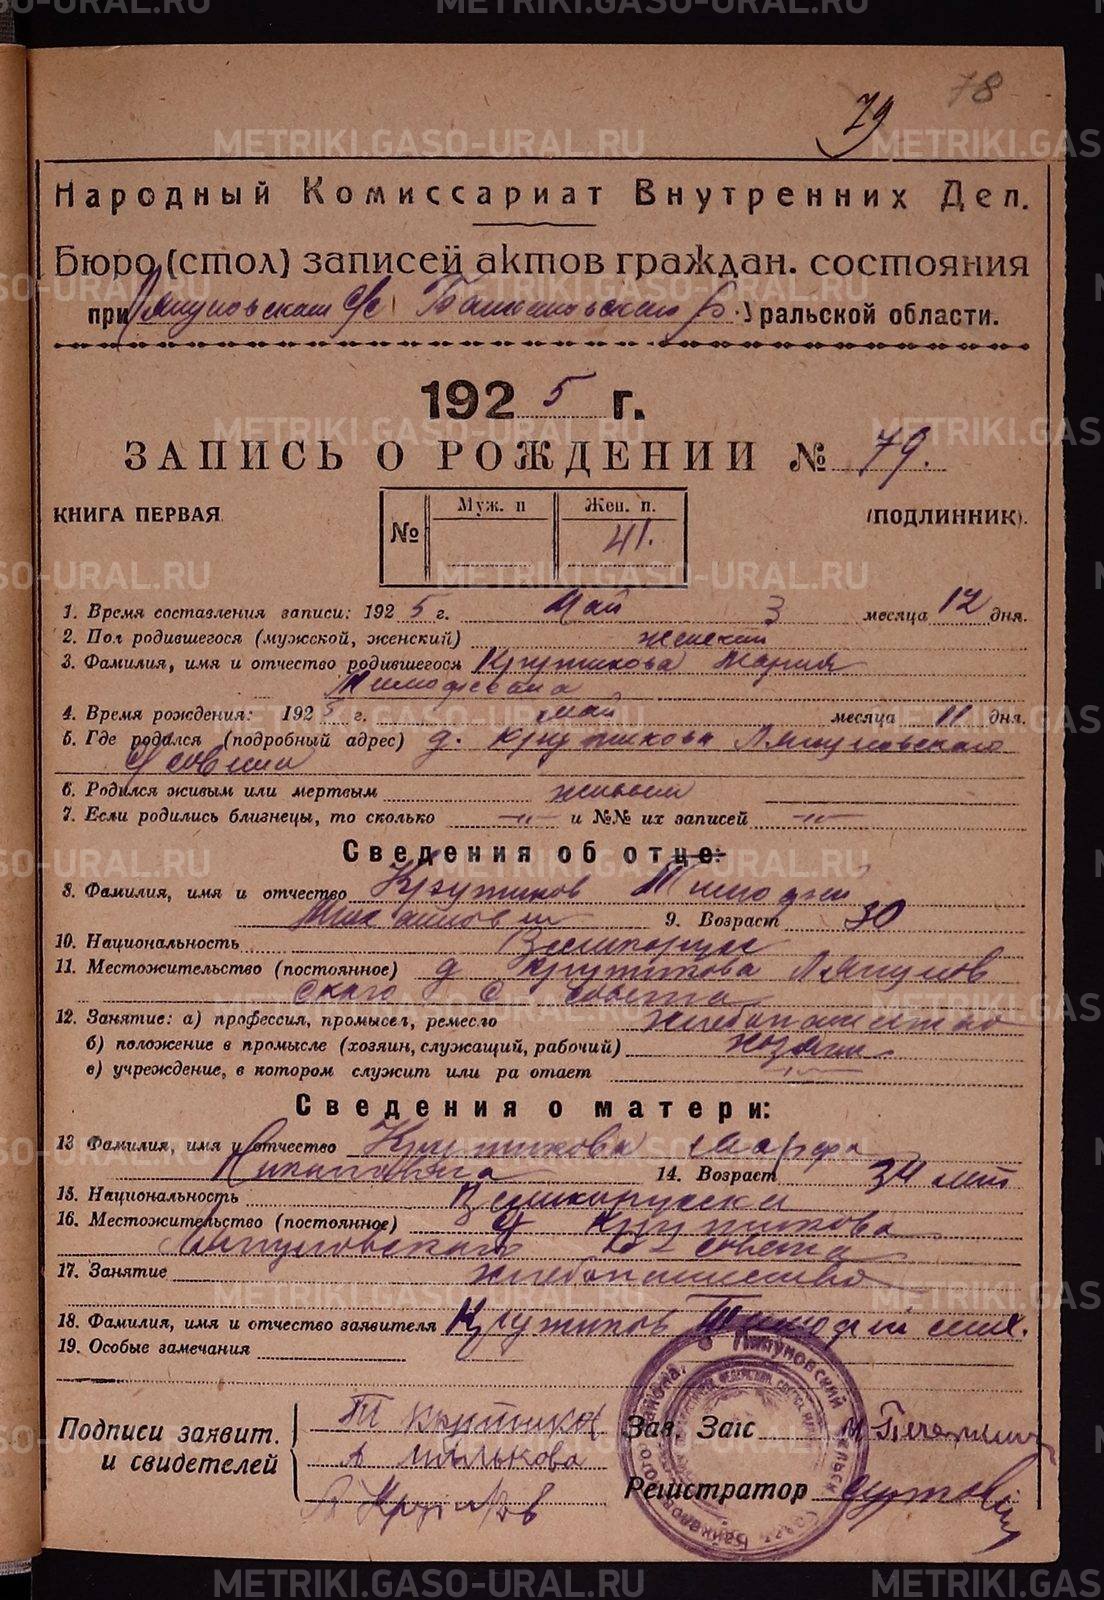 78
79
Народный Комиссариат Внутренних Дел.
Бюро (стол) записей актов граждан. состояния
при Ляпуновском с/с Байкаловского Р. Уральской области.
1925 г.
ЗАПИСЬ О РОЖДЕНИИ № 79.
КНИГА ПЕРВАЯ (ПОДЛИННИК).
№ Муж. п Жен. п.
41.
1. Время составления записи: 1925 г. Май 3 месяца 12 дня.
2. Пол родившегося (мужской, женский) женский
3. Фамилия, имя и отчество родившегося Крутикова Мария
Тимофеевна
4. Время рождения: 1925 г. май месяца 11 дня.
5. Где родился (подробный адрес) д. Крутикова Ляпуновского
с/совета
6. Родился живым или мертвым живым
7. Если родились близнецы, то сколько -"- и №№ их записей -"-
Сведения об отце:
8. Фамилия, имя и отчество Крутиков Тимофей
Михайлович 9. Возраст 30
10. Национальность
11. Местожительство (постоянное) д Крутикова Ляпунов
ского с совета
12. Занятие: а) профессия, промысел, ремесло хлебопашество
б) положение в промысле (хозяин, служащий, рабочий) хозяин
в) учреждение, в котором служит или ра отает -"-
Сведения о матери:
13 Фамилия, имя и отчество Крутикова Марфа
14. Возраст 34 лет
15. Национальность
16. Местожительство (постоянное) д Крутикова
Ляпуновского с совета
17. Занятие хлебопашество
18. Фамилия, имя и отчество заявителя Крутиков Тимофей Мих.
19. Особые замечания
Подписи заявит. и свидетелей
Т Крутиков
А
Крутиков
Зав. Загс
Регистратор
Ляпуновский сельск. Совет Байкаловского района
METRIKI.GASO-URAL.RU